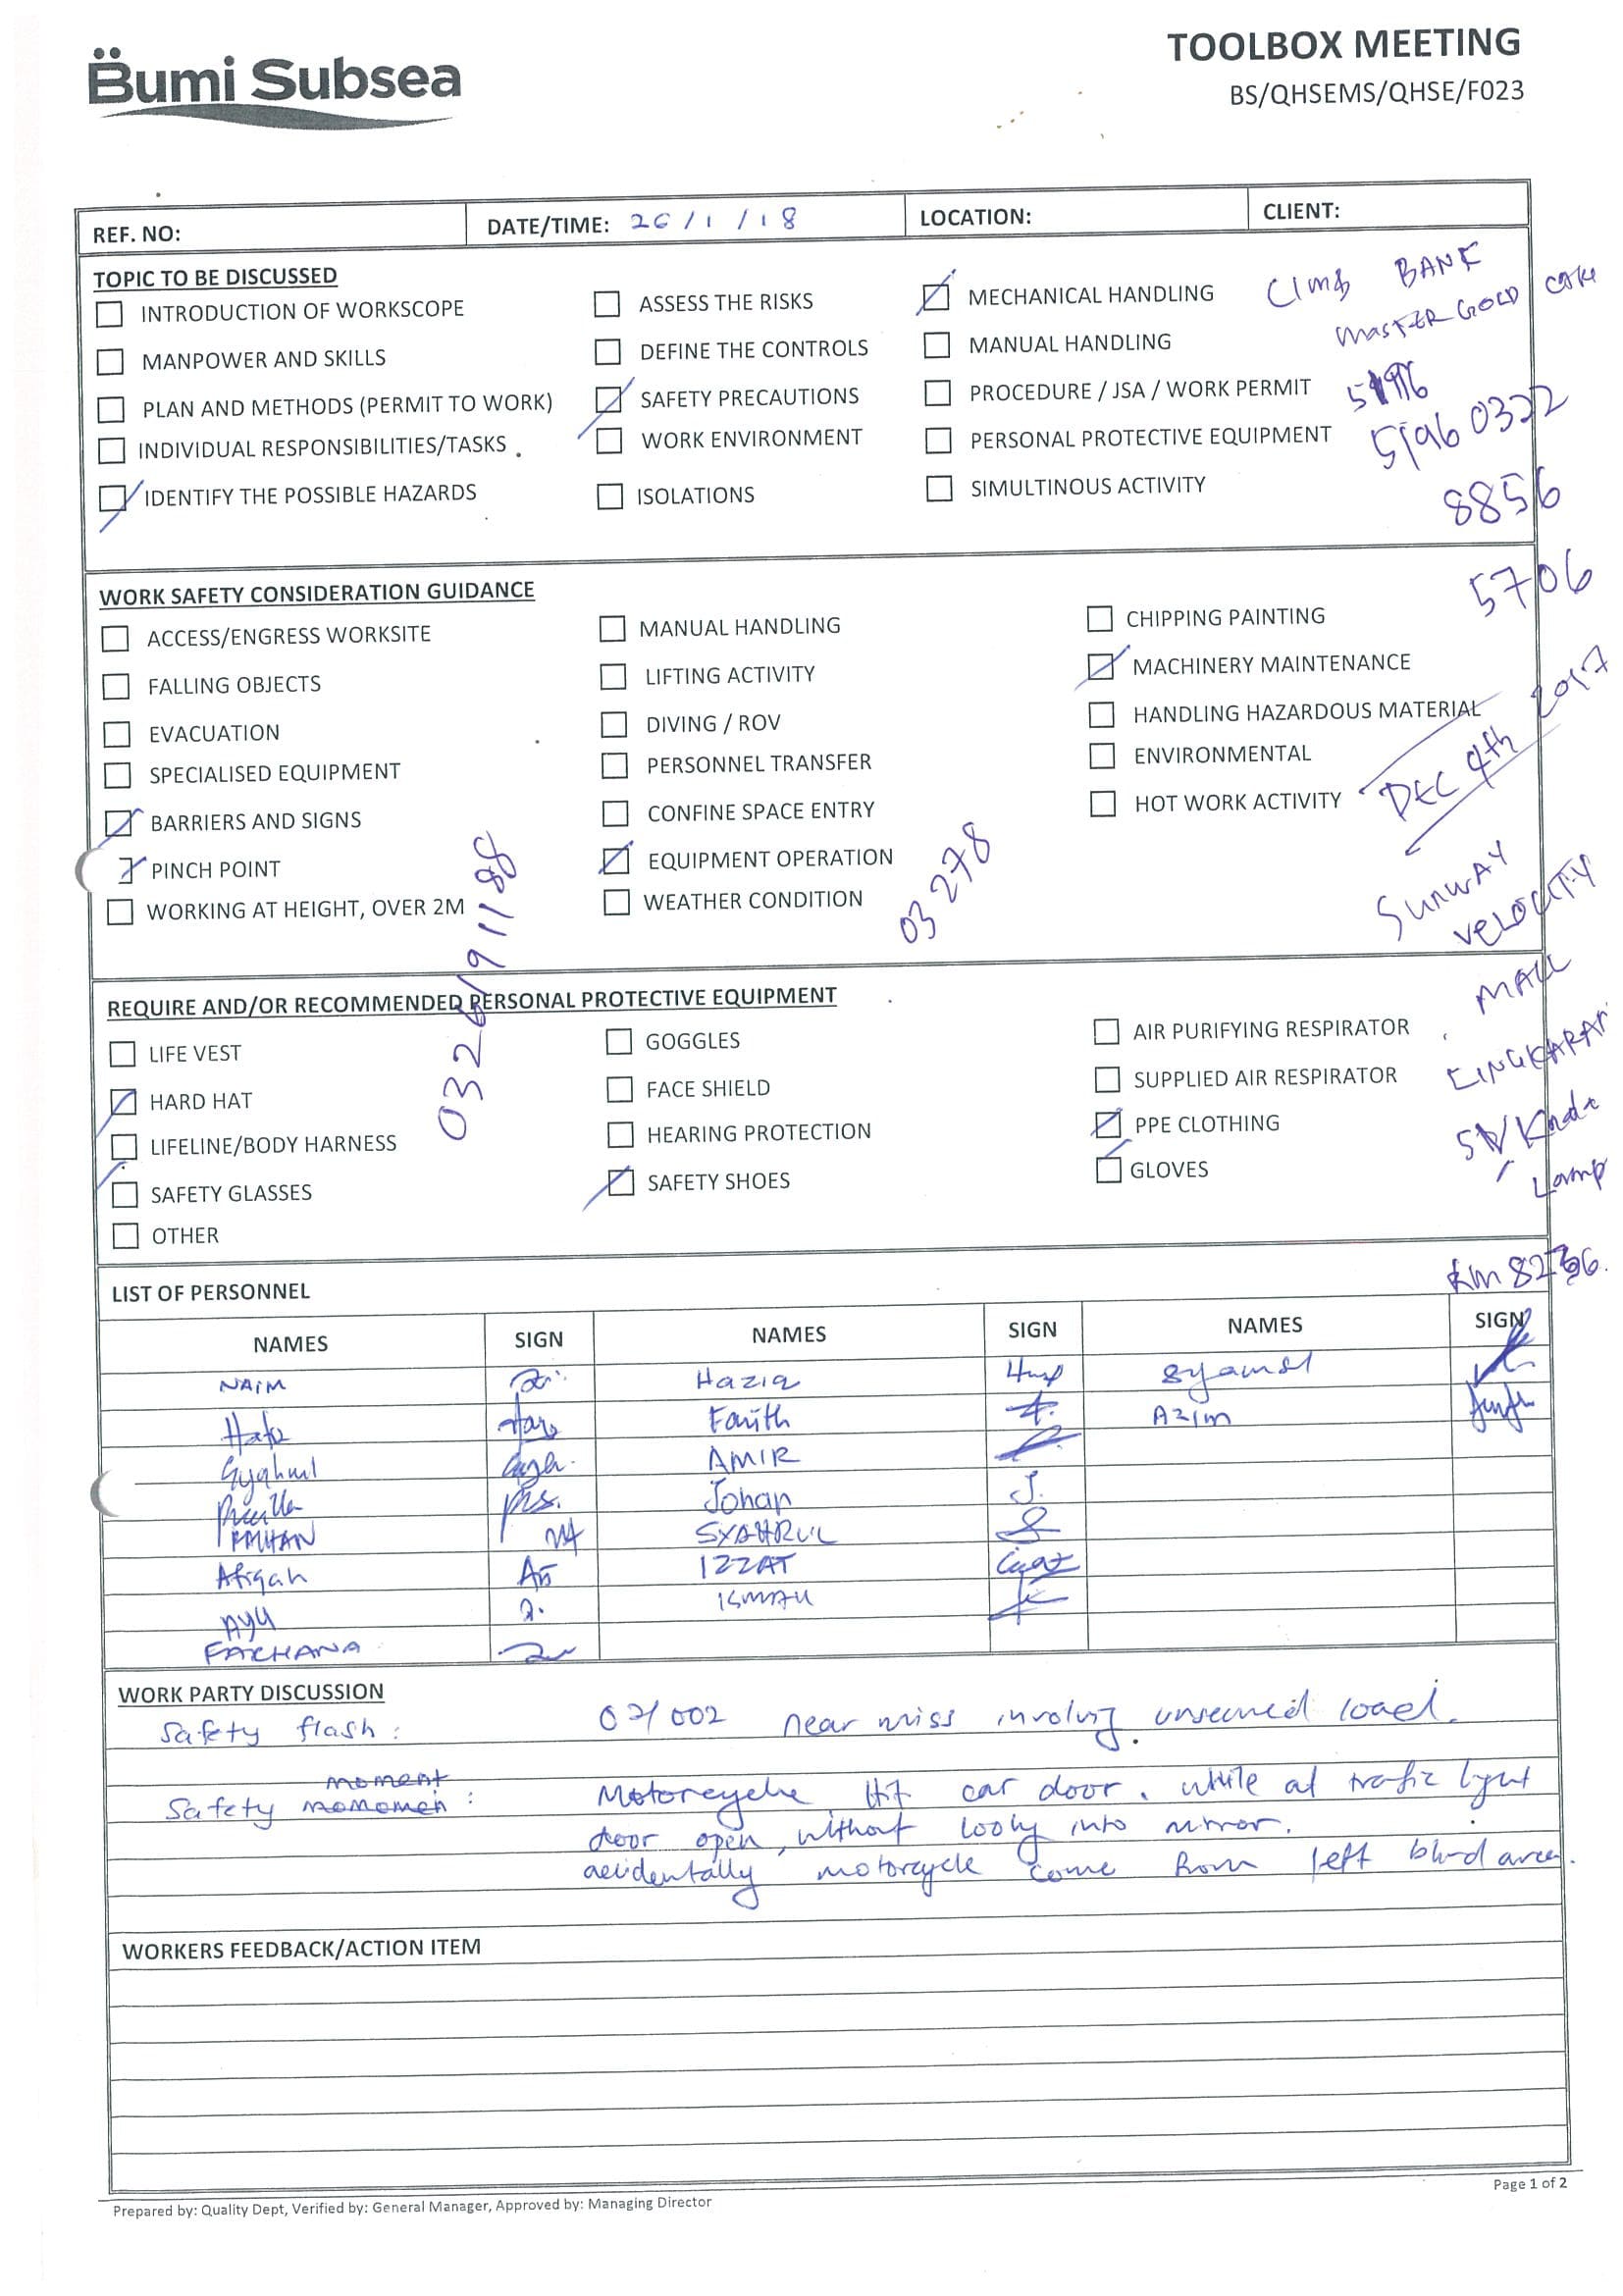 Bumi Subsea
TOOLBOX MEETING
BS/QHSEMS/QHSE/F023
REF. NO:
DATE/TIME: 26/1/18
LOCATION:
CLIENT:
TOPIC TO BE DISCUSSED
INTRODUCTION OF WORKSCOPE
MANPOWER AND SKILLS
PLAN AND METHODS (PERMIT TO WORK)
INDIVIDUAL RESPONSIBILITIES/TASKS
IDENTIFY THE POSSIBLE HAZARDS
ASSESS THE RISKS
DEFINE THE CONTROLS
SAFETY PRECAUTIONS
WORK ENVIRONMENT
ISOLATIONS
MECHANICAL HANDLING
MANUAL HANDLING
PROCEDURE / JSA / WORK PERMIT
PERSONAL PROTECTIVE EQUIPMENT
SIMULTINOUS ACTIVITY
CIMB BANK
MASTER GOLD
5196 0322
8856
5706
WORK SAFETY CONSIDERATION GUIDANCE
ACCESS/ENGRESS WORKSITE
FALLING OBJECTS
EVACUATION
SPECIALISED EQUIPMENT
BARRIERS AND SIGNS
PINCH POINT
WORKING AT HEIGHT, OVER 2M
MANUAL HANDLING
LIFTING ACTIVITY
DIVING / ROV
PERSONNEL TRANSFER
CONFINE SPACE ENTRY
EQUIPMENT OPERATION
WEATHER CONDITION
CHIPPING PAINTING
MACHINERY MAINTENANCE
HANDLING HAZARDOUS MATERIAL
ENVIRONMENTAL
HOT WORK ACTIVITY
DEC 9th 2017
SUNWAY
VELOCITY
MALL
LINGKARAN
03 278
REQUIRE AND/OR RECOMMENDED PERSONAL PROTECTIVE EQUIPMENT
LIFE VEST
HARD HAT
LIFELINE/BODY HARNESS
SAFETY GLASSES
OTHER
GOGGLES
FACE SHIELD
HEARING PROTECTION
SAFETY SHOES
AIR PURIFYING RESPIRATOR
SUPPLIED AIR RESPIRATOR
PPE CLOTHING
GLOVES
0326191188
LIST OF PERSONNEL
NAMES SIGN NAMES SIGN NAMES SIGN
NAIM Haziq Syamsl
Farith Azim
AMIR
Johan
SYAHRUL
Afiqah IZZAT
AYU
FARHANA
WORK PARTY DISCUSSION
Safety flash : 07/002 near miss involvg unsecured load.
moment
Safety momomen : Motorcycle Hit car door. while at trafic light
door open, without lookg into mirror.
accidentally motorcycle come from left blind area.
WORKERS FEEDBACK/ACTION ITEM
Page 1 of 2
Prepared by: Quality Dept, Verified by: General Manager, Approved by: Managing Director